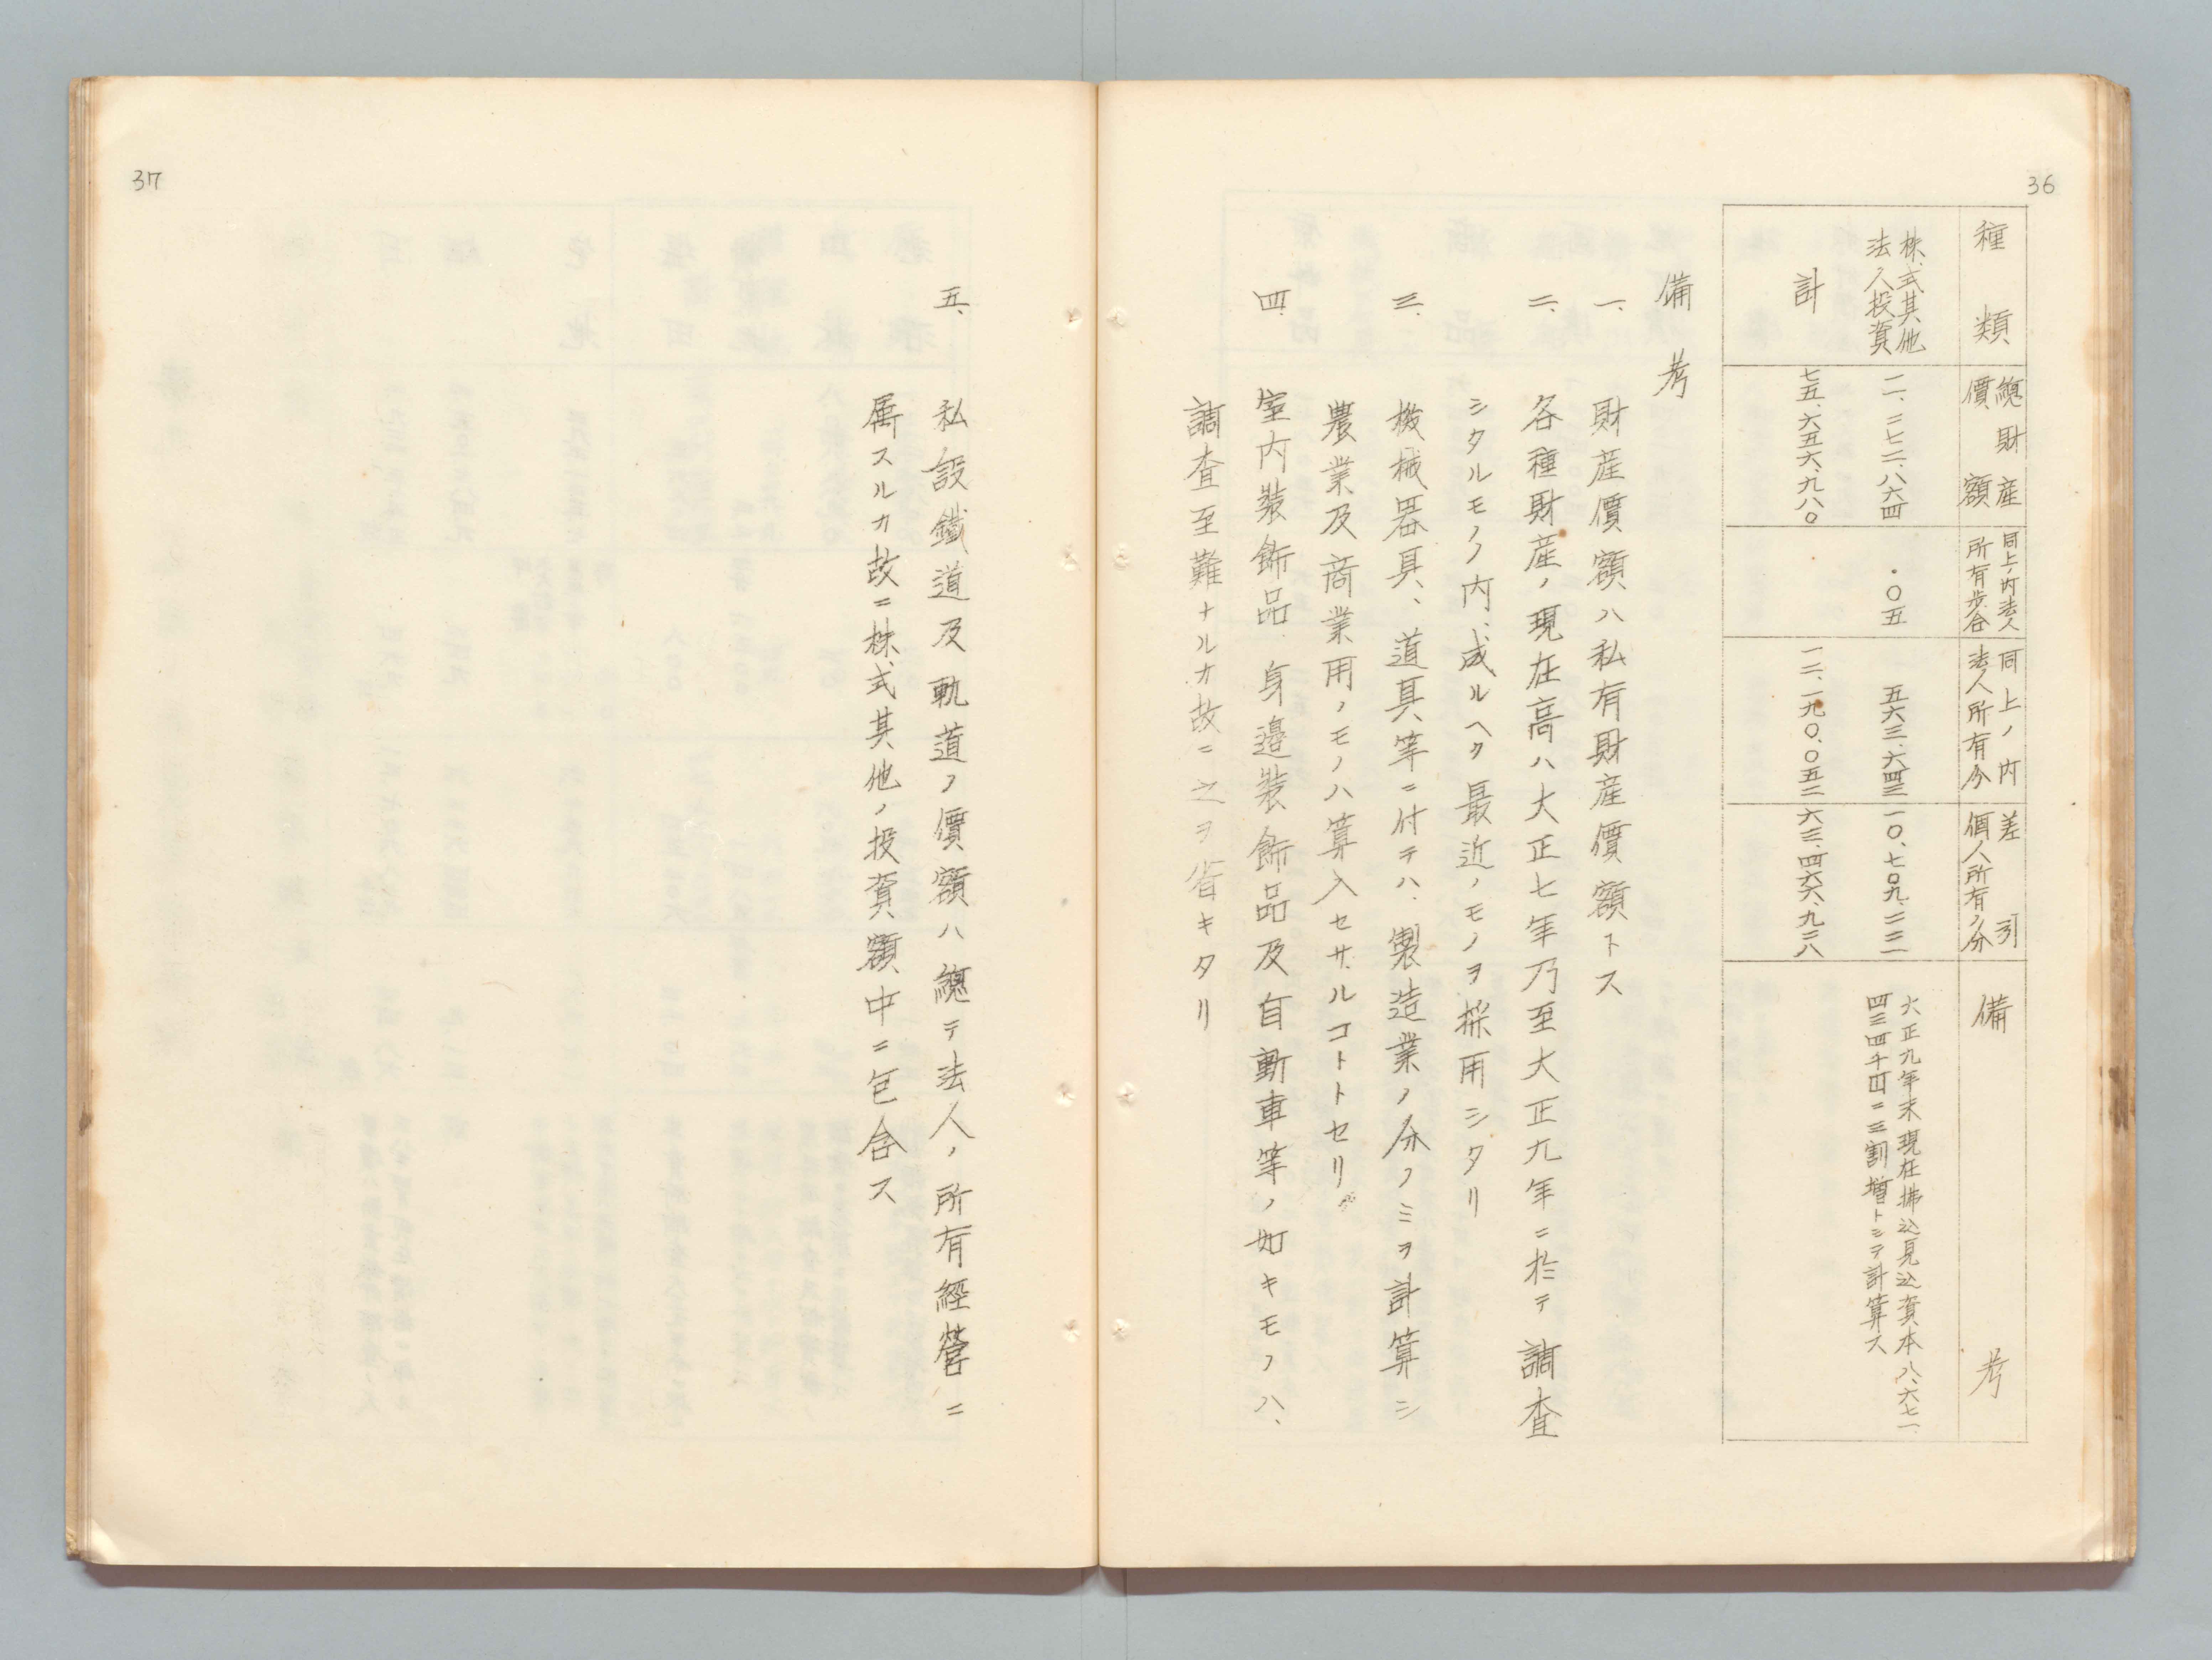 36
種類
總財産
價額
同上ノ内法人
所有歩合
同上ノ内
法人所有分
差引
個人所有ノ分
備考
株式其他
法人投資
一一、二七二、八六四
・〇五
五六三、六四三
一〇、七〇九、二二一
大正九年末現在拂込見込資本八、六七一、
四三四千円ニ三割増トシテ計算ス
計
七五、六五六、九八〇
一二、一九〇、〇五二
六三、四六六、九二八
備考
一、財産價額ハ私有財産價額トス
二、各種財産ノ現在高ハ大正七年乃至大正九年ニ於テ調査
シタルモノノ内、成ルヘク最近ノモノヲ採用シタリ
三、機械器具、道具等ニ付テハ、製造業ノ分ノミヲ計算シ
農業及商業用ノモノハ算入セサルコトトセリ
四、室内装飾品、身邉装飾品及自動車等ノ如キモノハ、
調査至難ナルカ故ニ之ヲ省キタリ
37
五、私設鐵道及軌道ノ價額ハ總テ法人ノ所有經營ニ
属スルカ故ニ株式其他ノ投資額中ニ包含ス